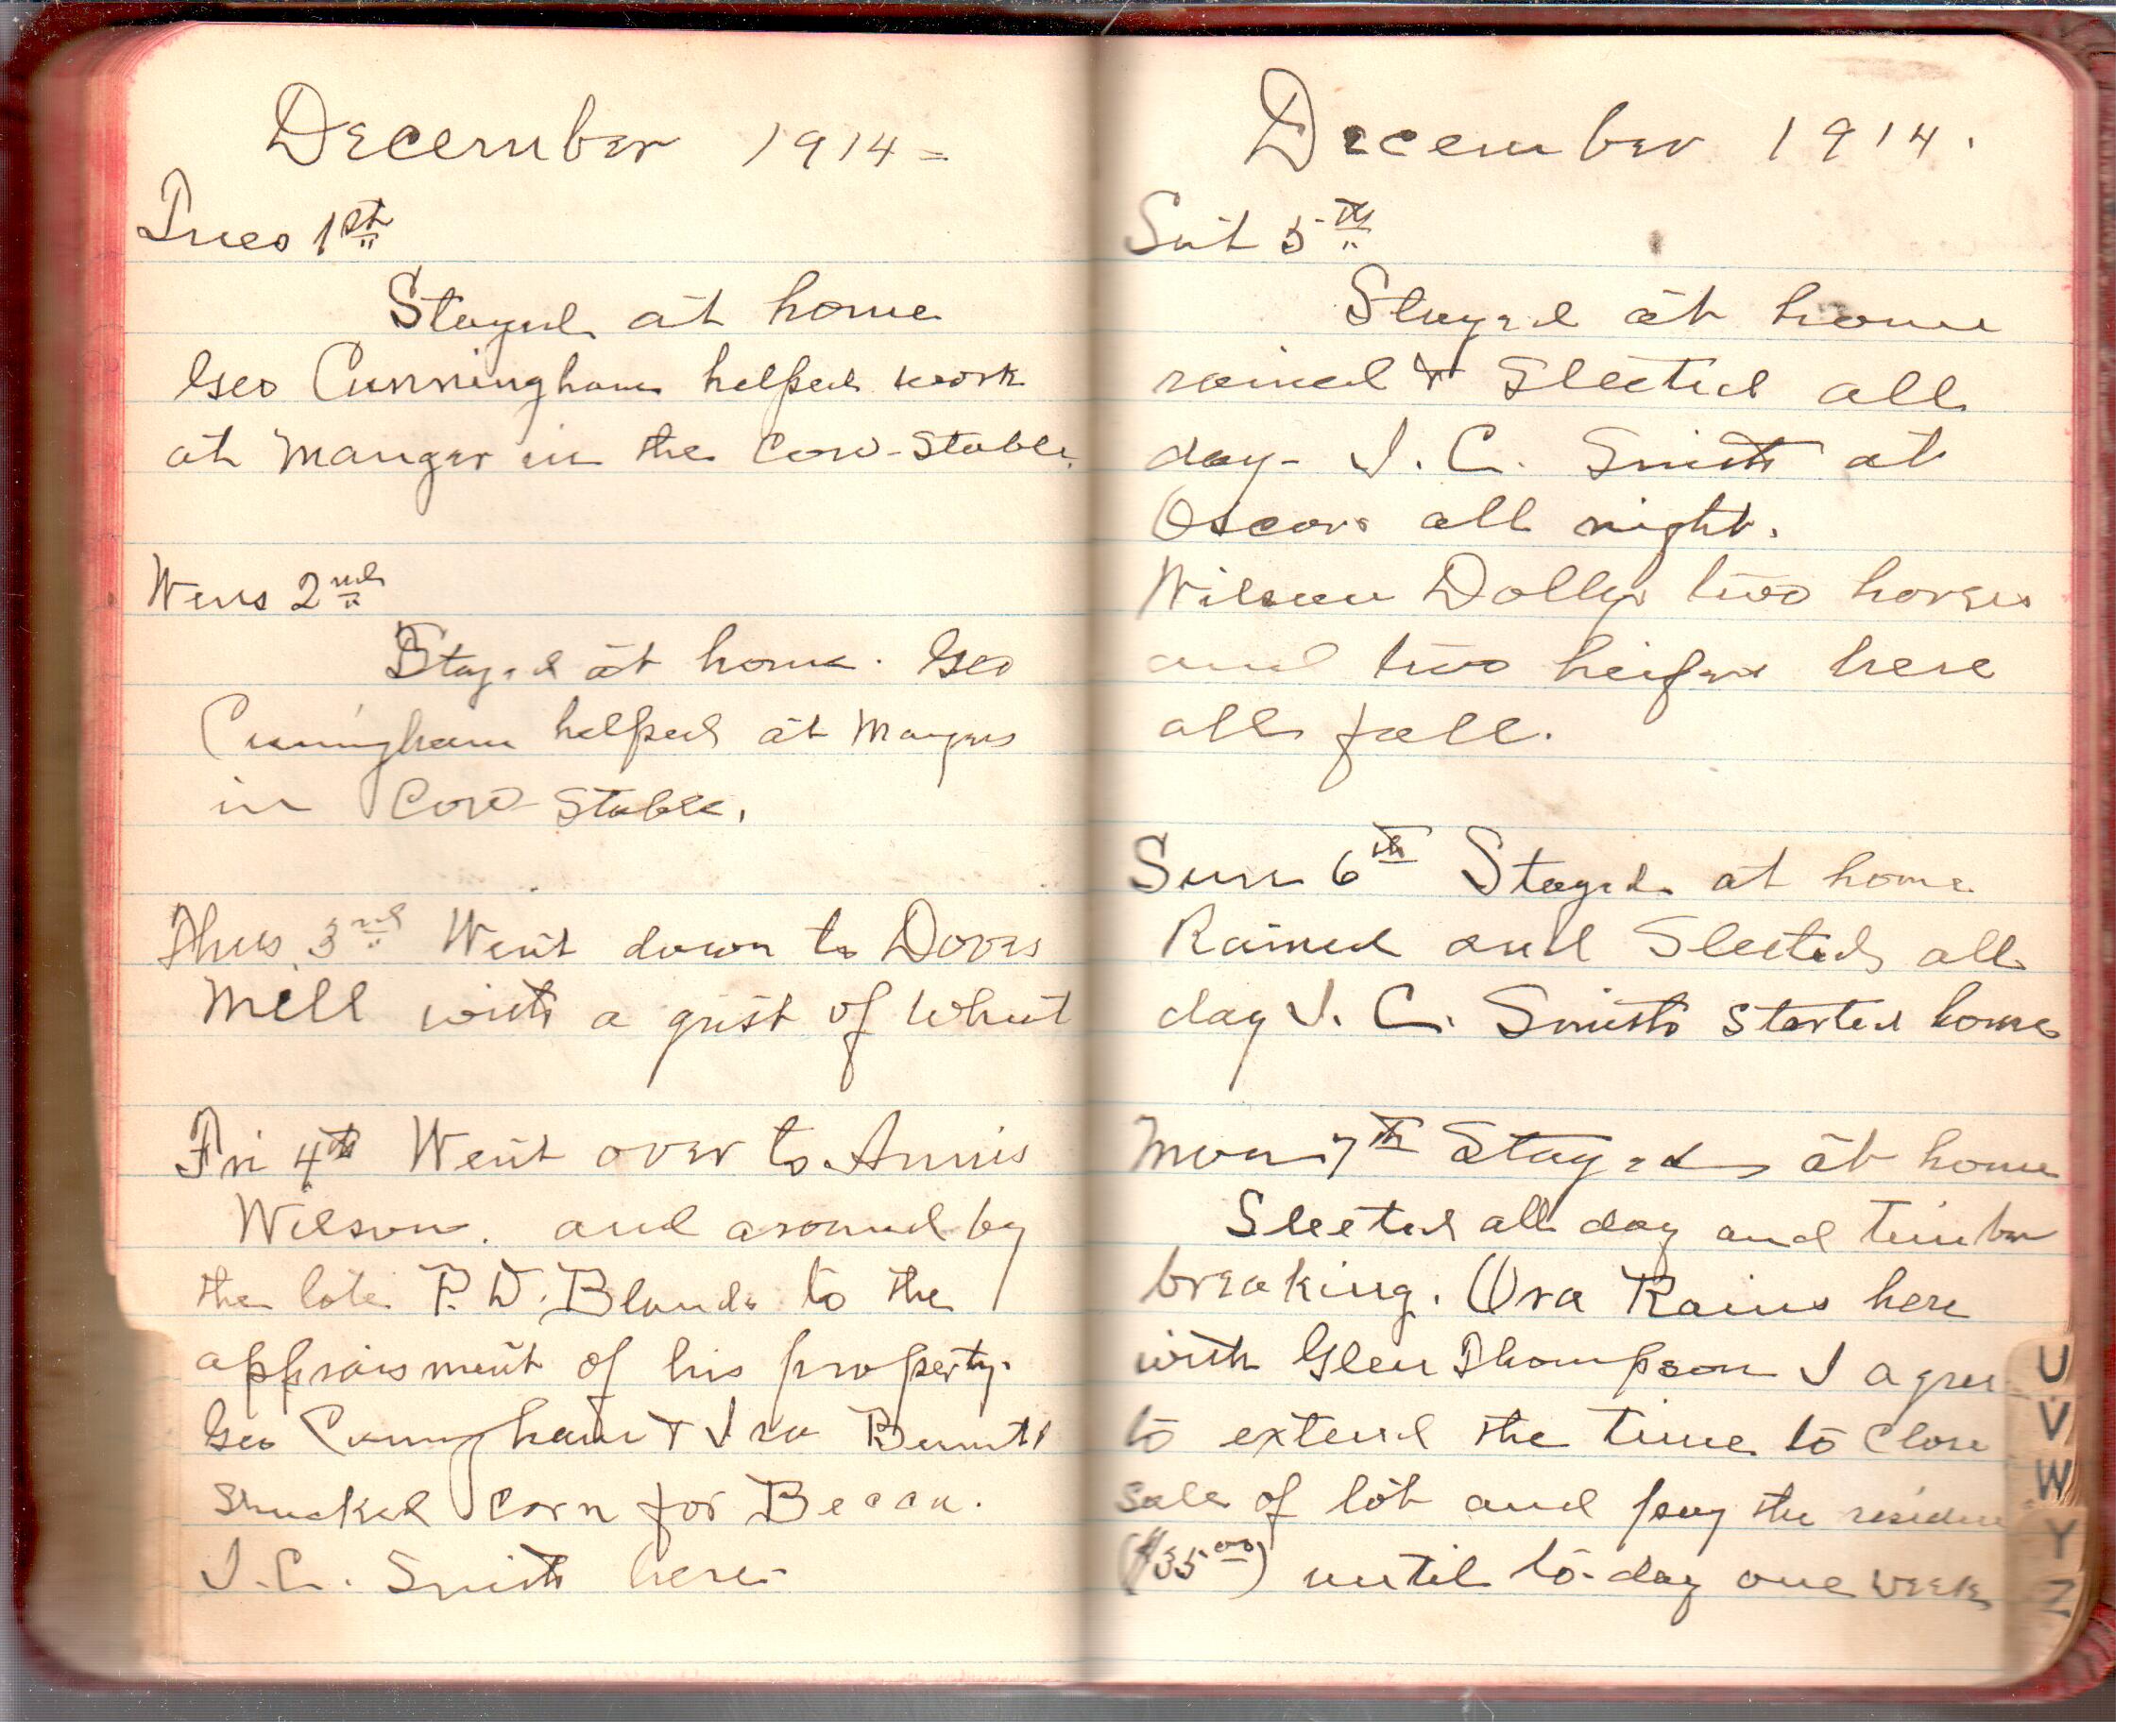 December 1914 =
Tues 1st
Stayed at home
Geo Cunningham helped work
at Manger in the Cow-Stable.
Wens 2nd
Stayed at home. Geo
Cunningham helped at Mangers
in Cow-Stable.
Thus. 3rd Went down to
Mill with a grist of Wheat
Fri 4th Went over to Annis
Wilson. and around by
the late P. D. Blands to the
appraisment of his property.
Geo Cunningham & Ira
shucked corn for Becca.
J. C. Smith here
December 1914.
Sat 5th
Stayed at home
rained & Sleeted all
day- J. C. Smith at
Oscars all night.
Wilson Dollys two horses
and two heifers here
all fall.
Sun 6th Stayed at home
Rained and Sleeted all
day J. C. Smith Started home
Mon 7th Stayed at home
Sleeted all day and timber
breaking. Ora Rains here
with Glen Thompson I agree
to extend the time to close
sale of lot and pay the residue
($3500) until to-day one week
U
V
W
Y
Z